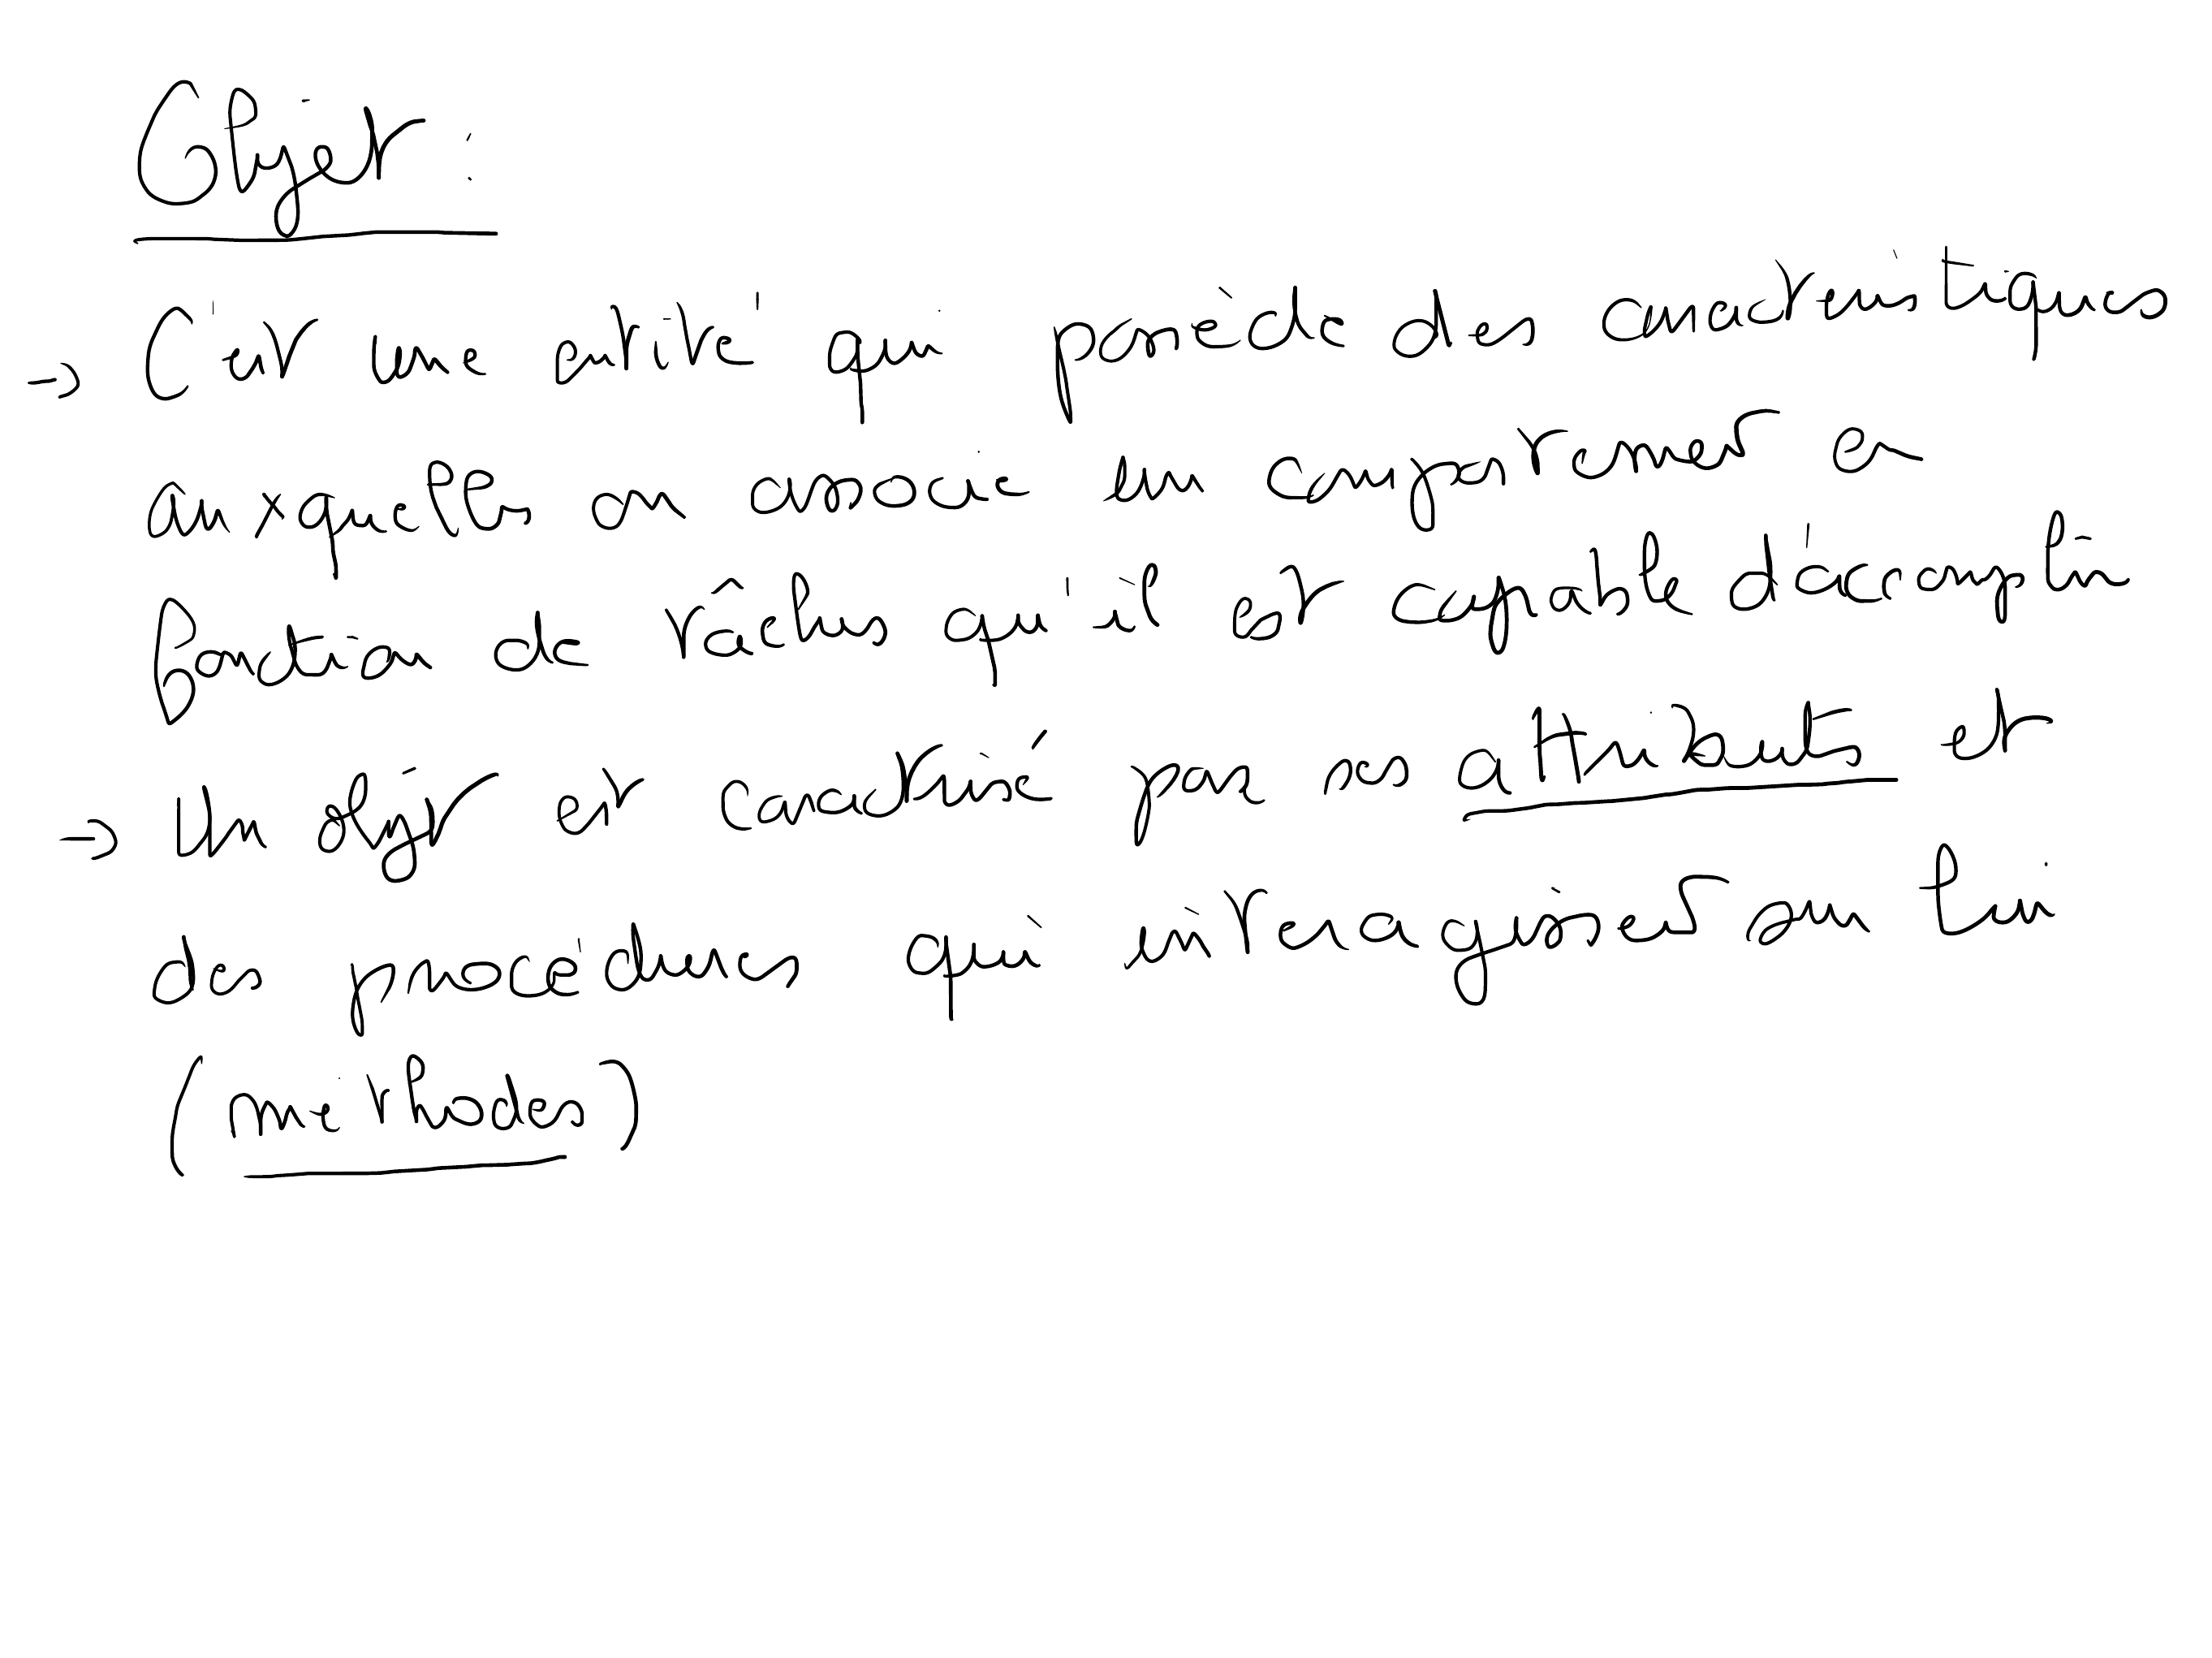 Objet :
→ C'est une entité qui possède des caractéristiques
auxquelles on associe un comportement en
fonction de tâches qu'il est capable d'accomplir
→ Un objet est caractérisé par ses attributs et
des procédures qui interagissent sur lui
(méthodes)